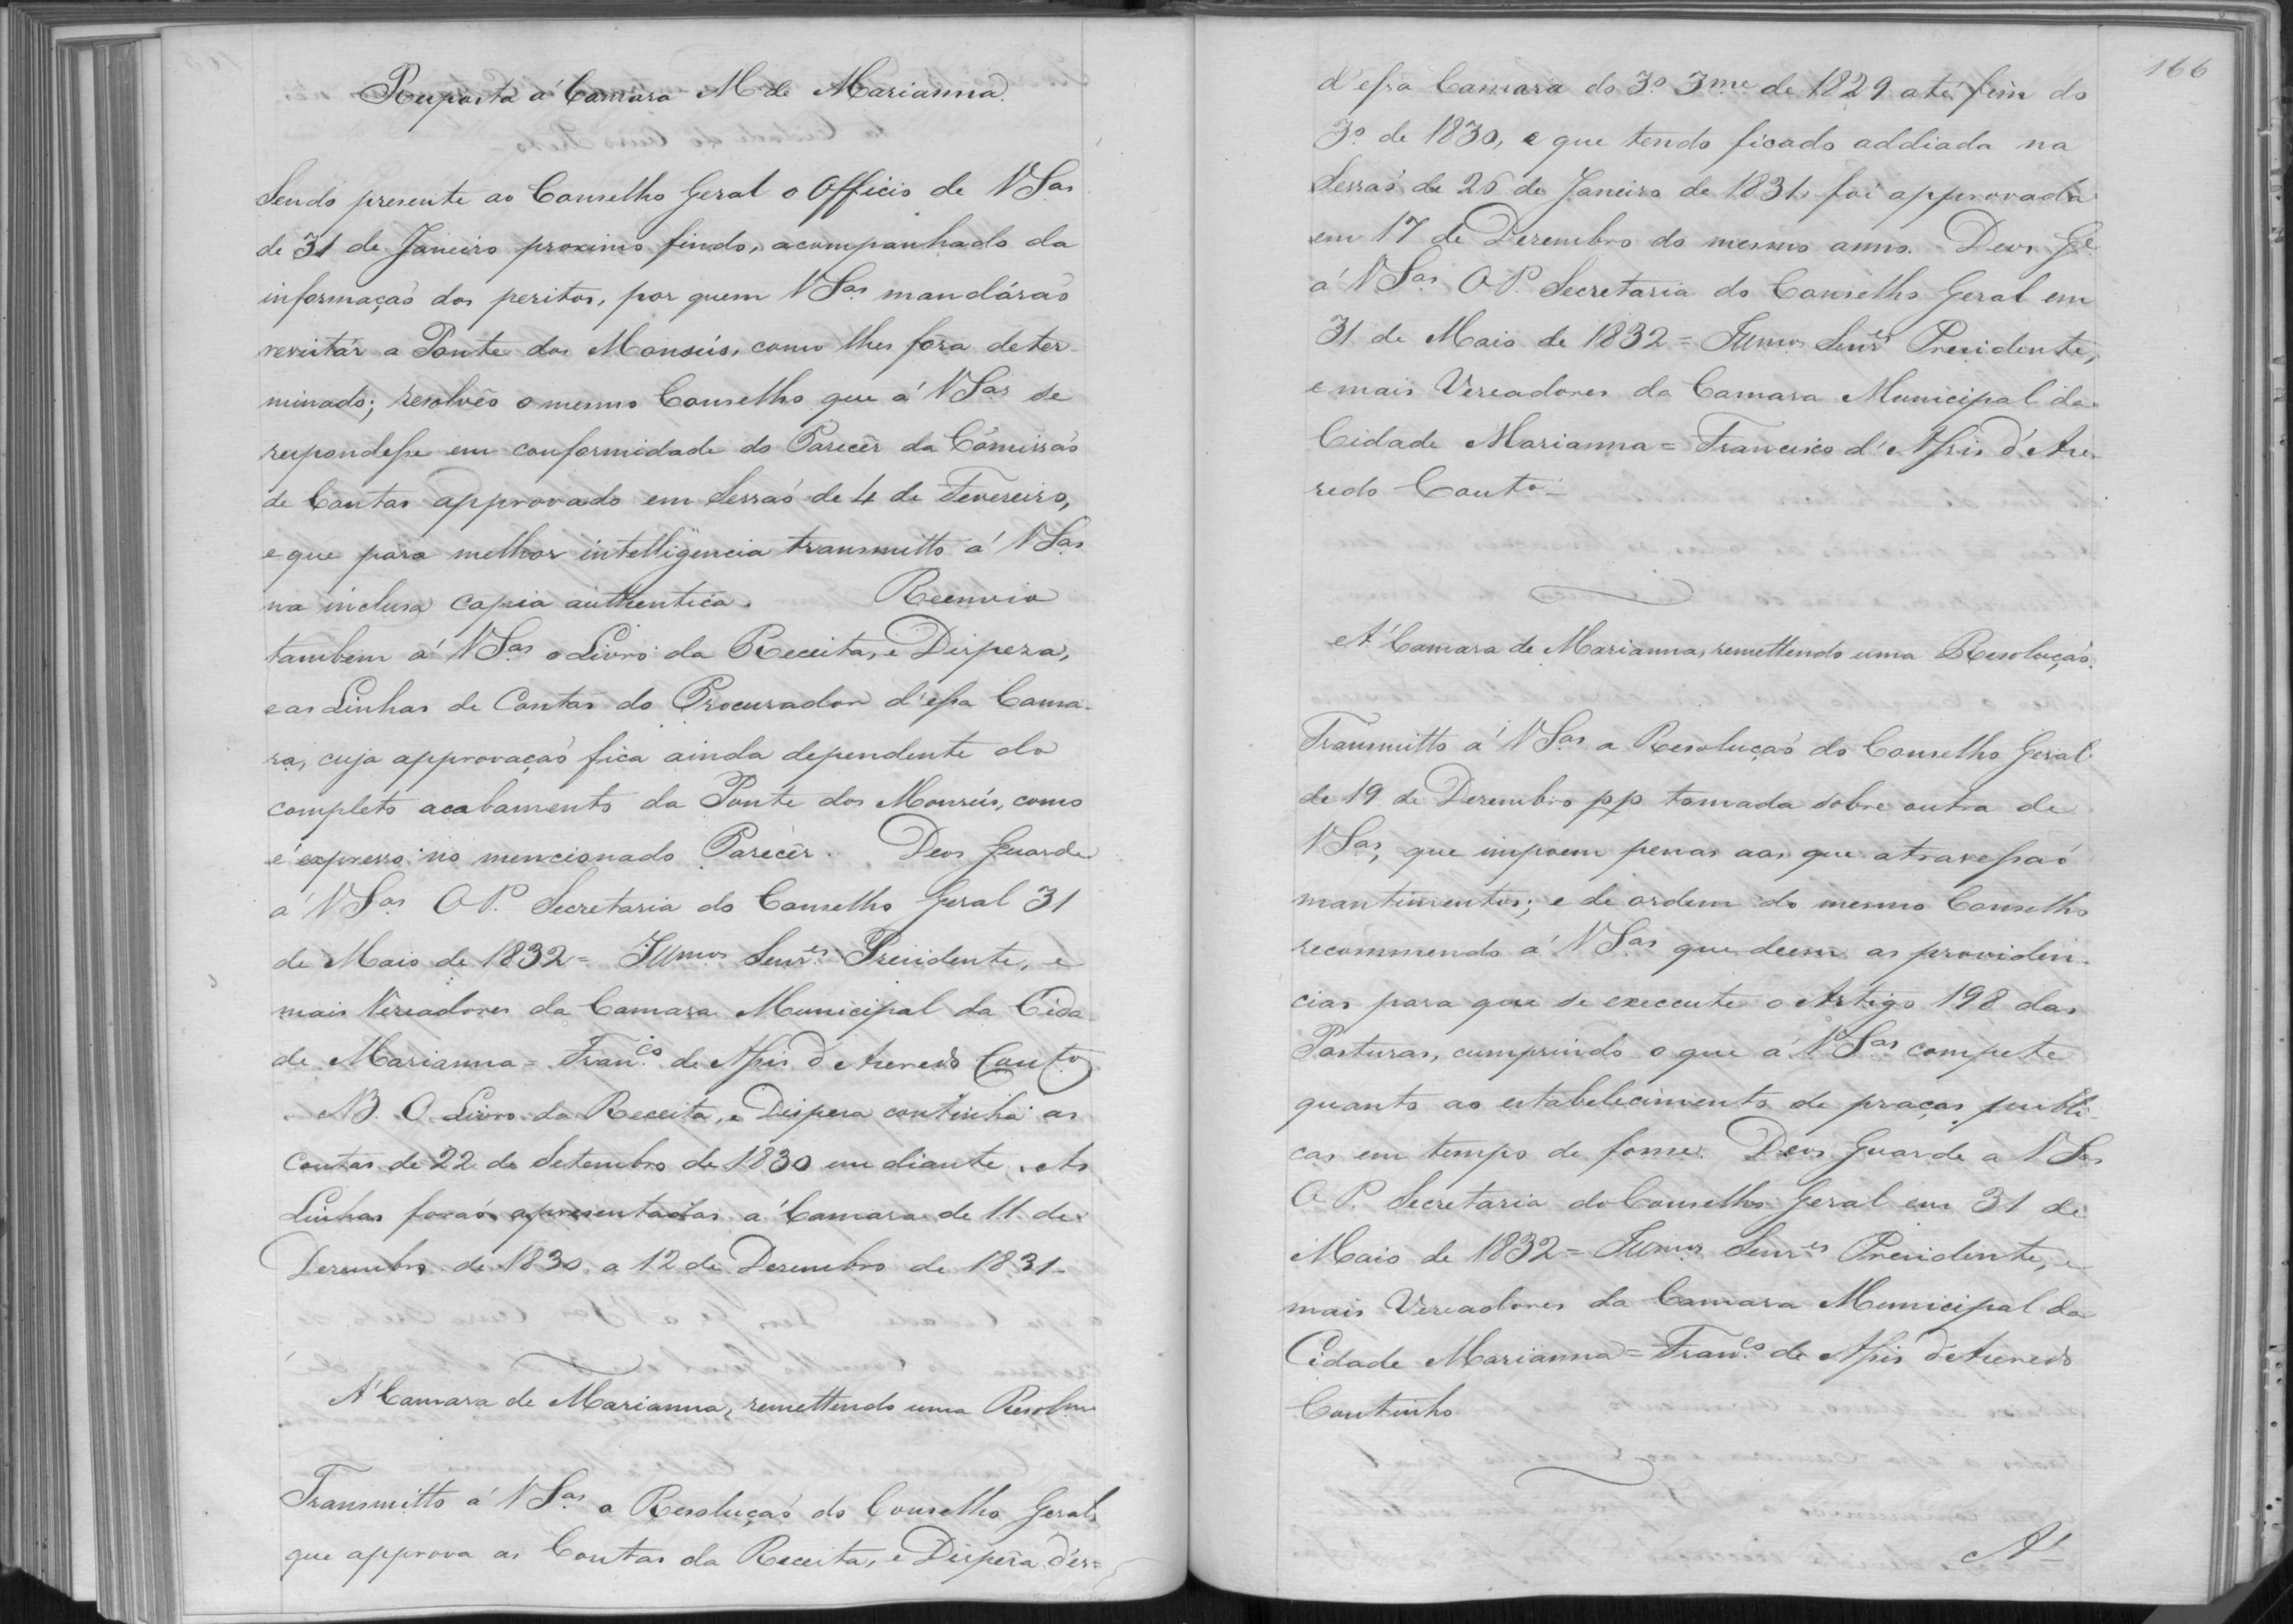 Resposta á Camara M de Marianna.
Sendo presente ao Conselho Geral o Officio de VSas
de 31 de Janeiro proximo findo, acompanhado da
informaçaõ dos peritos, por quem VSas mandáraõ
revistár a Ponte dos Monsús, como lhes fôra deter-
minado; resolvêo o mesmo Conselho que á VSas se
respondesse em conformidade do Parecêr da Comissaõ
de Contas approvado em Sessaõ de 4 de Fevereiro,
e que para melhor intelligencia transmitto á VSas
na inclusa copia authentica. Reenvio
tambem á VSas o Livro da Receita, e Dispeza,
e as Linhas de Contas do Procurador d'essa Cama-
ra, cuja approvaçaõ fica ainda dependente do
completo acabamento da Ponte dos Monsús, como
é expresso no mencionado Parecêr. Deos Guarde
á VSas O P. Secretaria do Conselho Geral 31
de Maio de 1832 = Illmos Senres Presidente, e
mais Vereadores da Camara Municipal da Cida
de Marianna = Franco de Assis d'Azeredo Couto
NB. O Livro da Receita, e Dispeza continha as
contas de 22 de Setembro de 1830 em diante. As
Linhas foraõ apresentadas á Camara de 11 de
Dezembro de 1830 a 12 de Dezembro de 1831-
Á Camara de Marianna, remettendo uma Resolm
Transmitto á VSas a Resoluçaõ do Conselho Geral,
que approva as Contas da Receita, e Dispeza d'es=
166
d'essa Camara do 3o 3me de 1829 até fim do
3o de 1830, e que tendo ficado addiada na
Sessaõ de 26 de Janeiro de 1831, foi approvada
em 17 de Dezembro do mesmo anno. Deos Ge
á VSas O P. Secretaria do Conselho Geral em
31 de Maio de 1832 = Illmos Senres Presidente,
e mais Vereadores da Camara Municipal da
Cidade Marianna = Francisco d'Assis d'Aze-
redo Couto-
Á Camara de Marianna, remettendo uma Resoluçaõ.
Transmitto á VSas a Resoluçaõ do Conselho Geral
de 19 de Dezembro pp tomada sobre outra de
VSas, que impoem penas aos que atravessaõ
mantimentos; e de ordem do mesmo Conselho
recommendo á VSas que deem as providen-
cias para que se execcute o Artigo 198 das
Posturas, cumprindo o que á VSas compete
quanto ao estabelecimento de praças publi-
cas em tempo de fome. Deos Guarde a VSas
O P. Secretaria do Conselho Geral em 31 de
Maio de 1832 = Illmos Senres Presidente, e
mais Vereadores da Camara Municipal da
Cidade Marianna = Franco de Assis d'Azeredo
Coutinho
Á